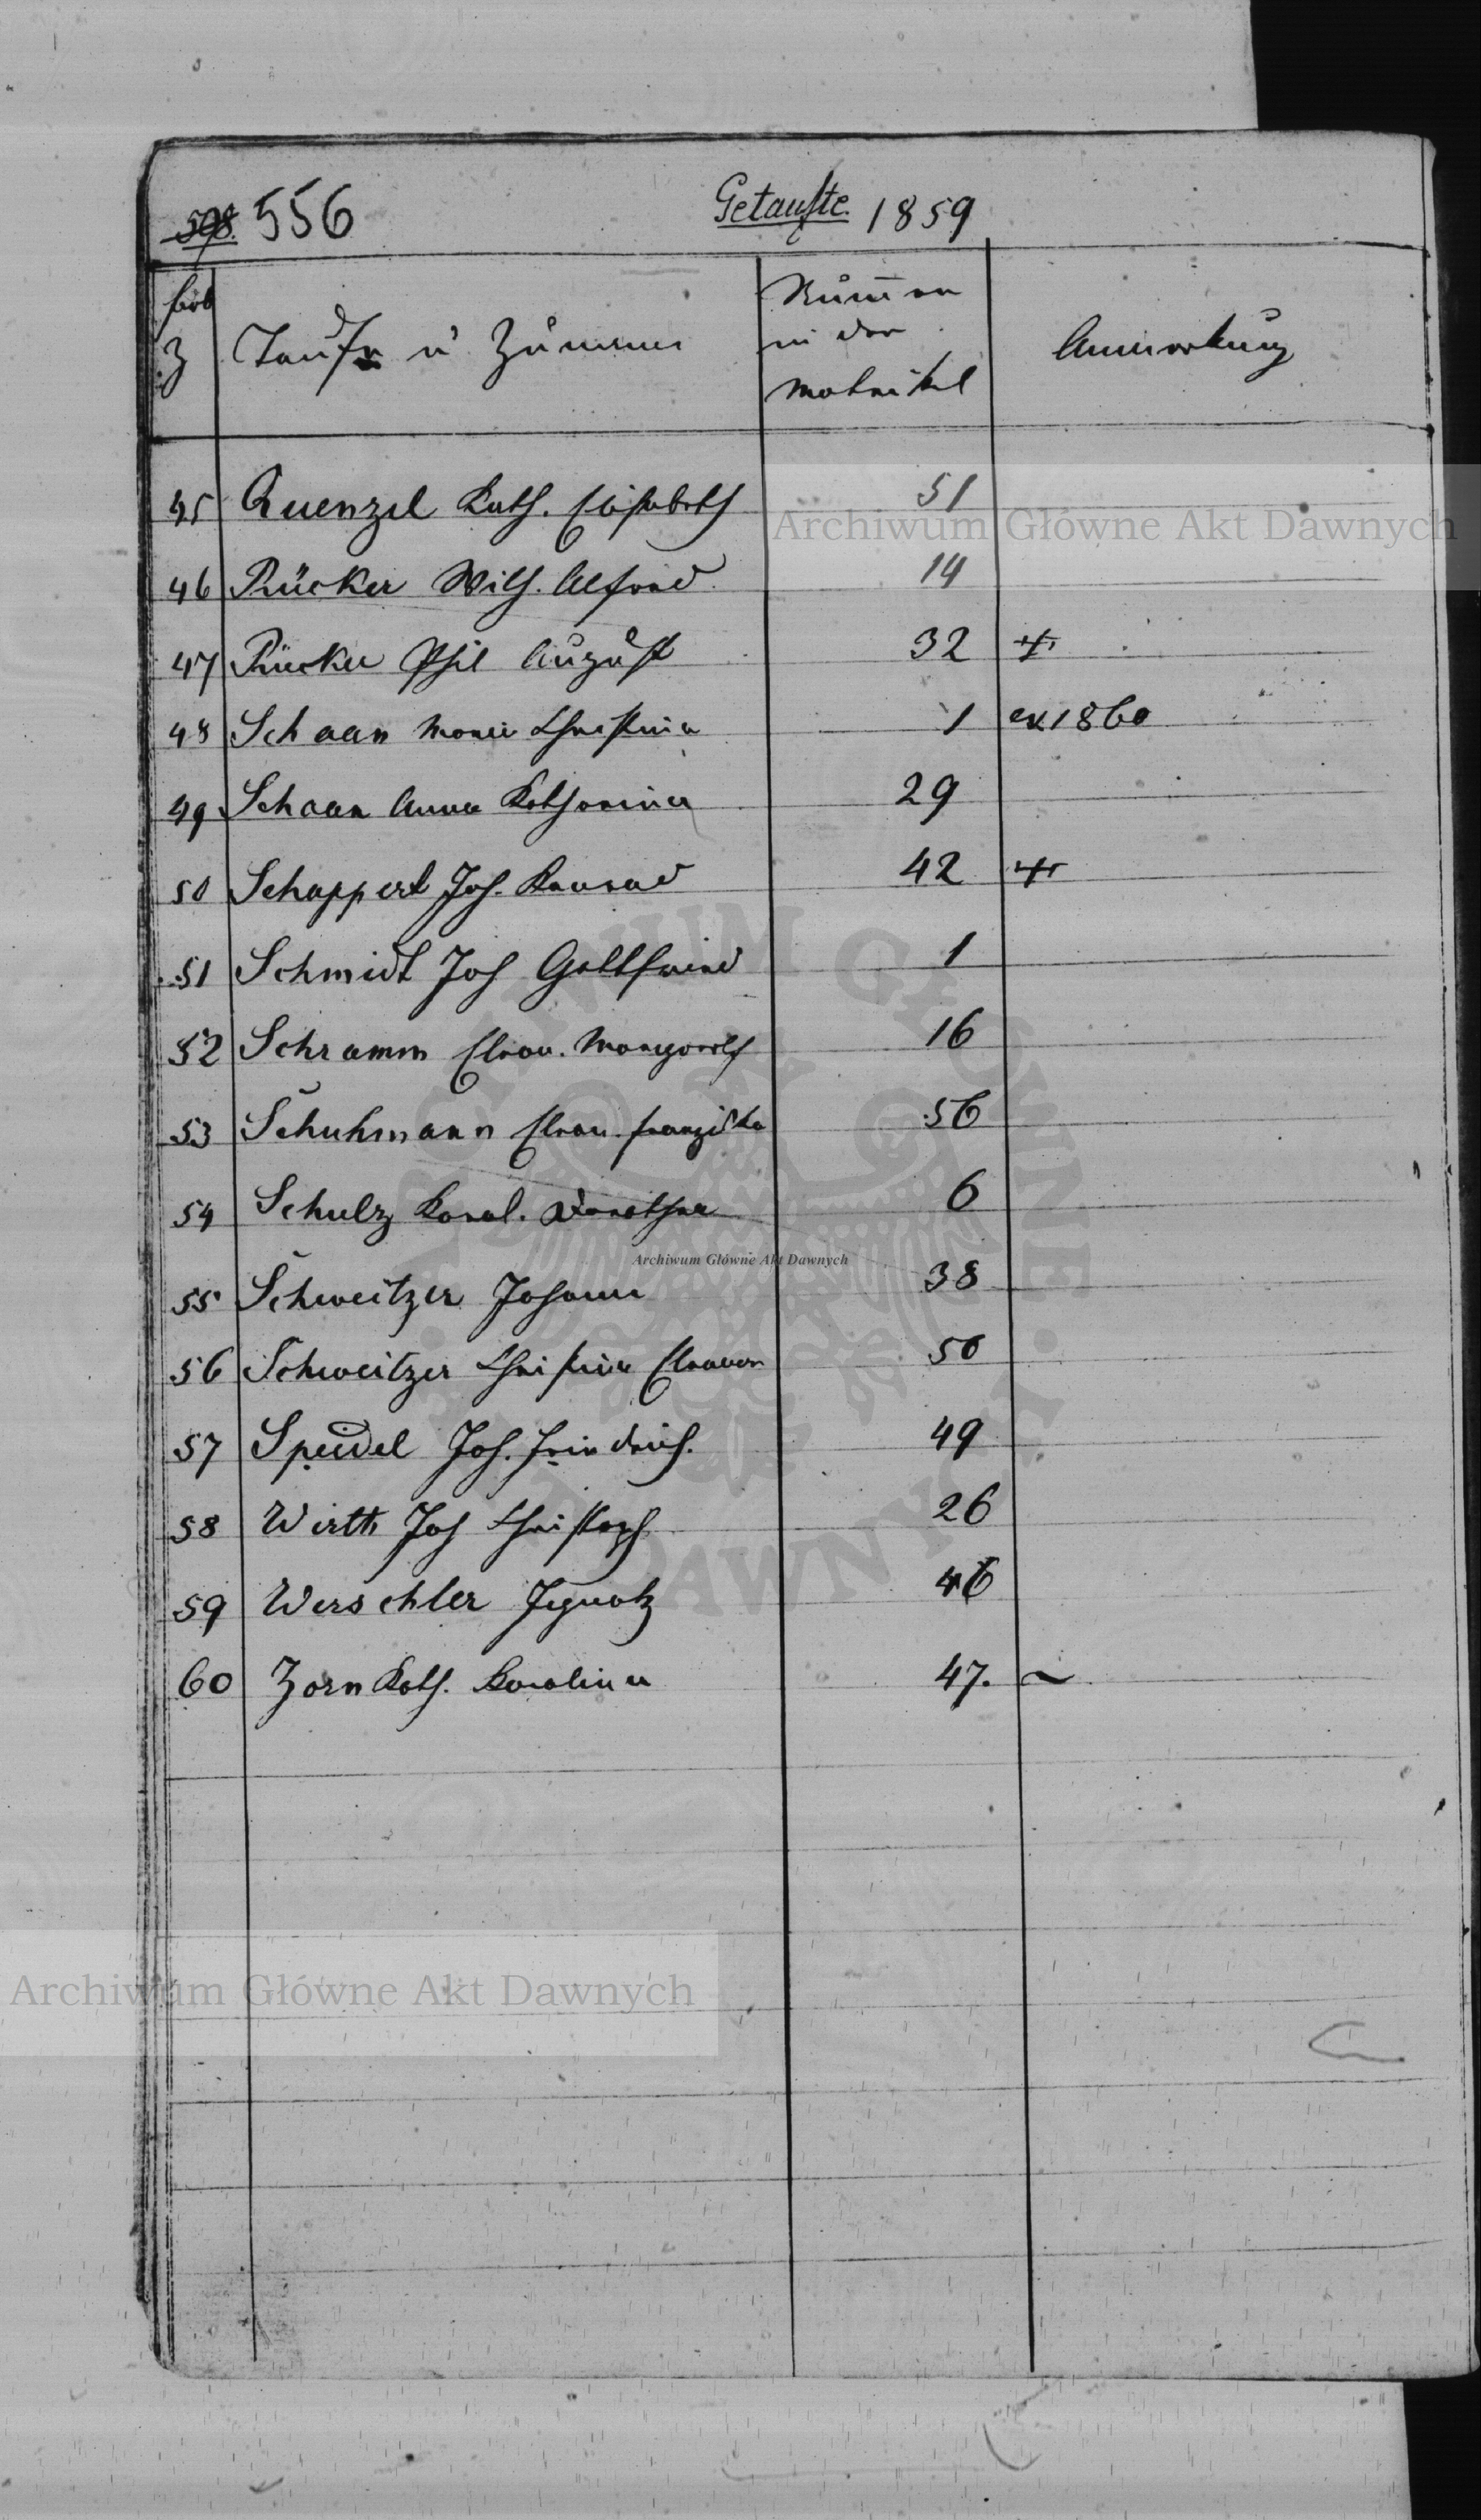 598. 556 Getaufte 1859
fort
Z Tauf u Zunamen
Numer
in der
Matrikel
Anmerkung
45 Quenzel Kath. Elisabeth 51
46 Rücker Wilh. Alfred 14
47 Rücker Phil August 32 +
48 Schaan Marie Christina 1 ex 1860
49 Schaan Anna Katharina 29
50 Schappert Joh. Konrad 42 +
51 Schmidt Joh Gottfried 1
52 Schramm Eleon. Margareth 16
53 Schuhmann Eleon. Franziska 56
54 Schulz Karol. Dorothea 6
55 Schweitzer Johann 38
56 Schweitzer Christine Eleonor 50
57 Speidel Joh. Friedrich. 49
58 Wirth Joh Christoph 26
59 Werschler Ignatz 46
60 Zorn Kath. Karolina 47. ~
Archiwum Główne Akt Dawnych
Archiwum Główne Akt Dawnych
Archiwum Główne Akt Dawnych
ARCHIWUM GŁÓWNE AKT DAWNYCH